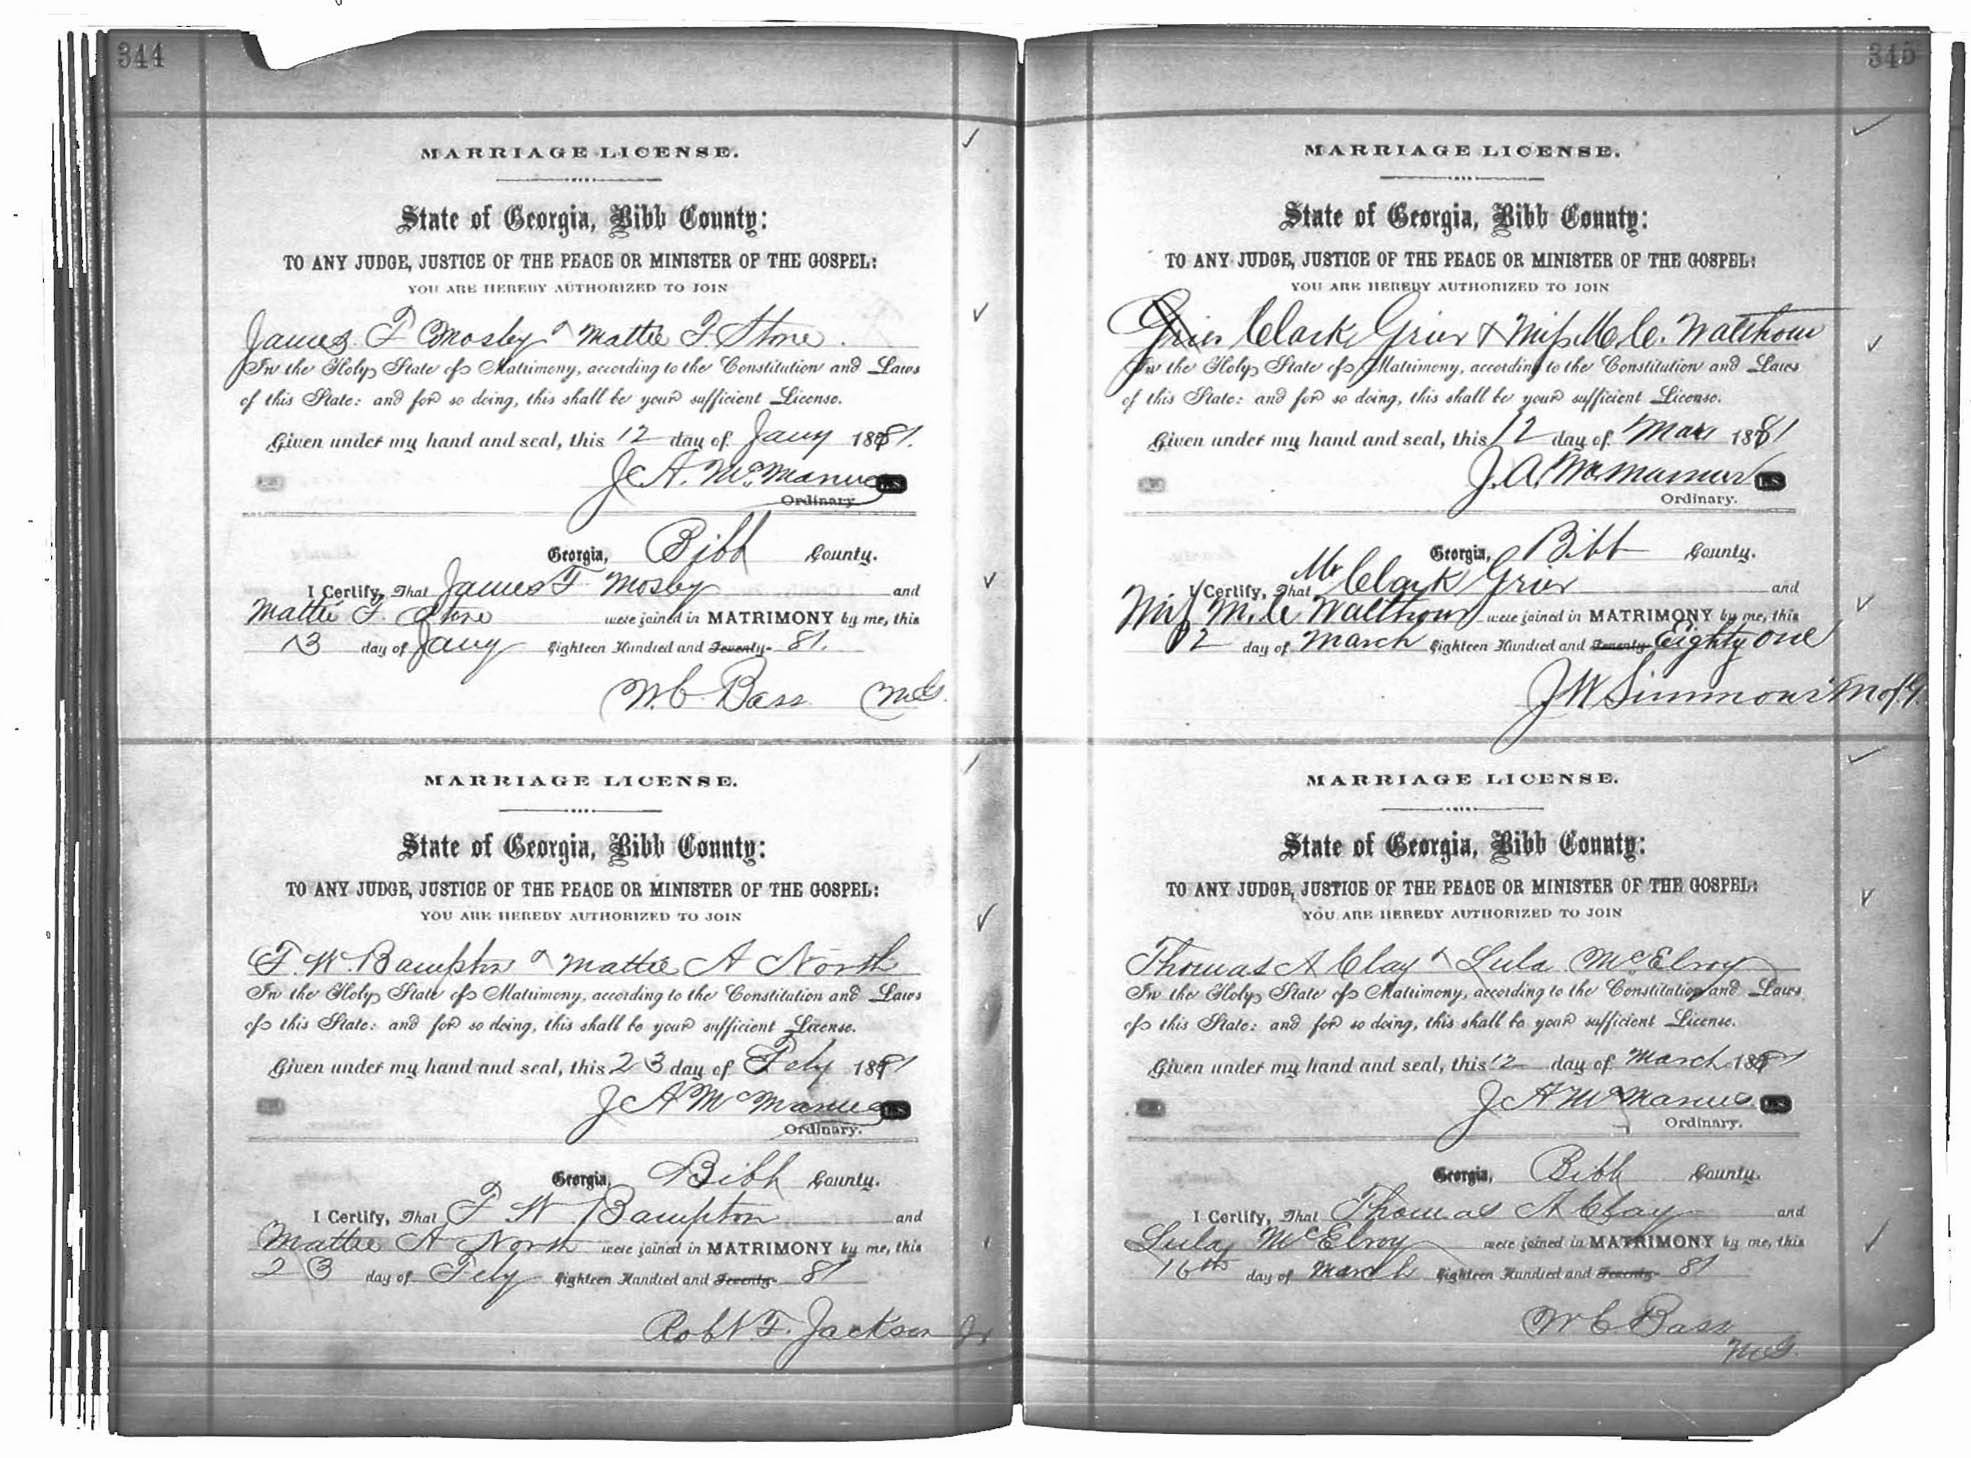 344
MARRIAGE LICENSE.
State of Georgia, Bibb County:
TO ANY JUDGE, JUSTICE OF THE PEACE OR MINISTER OF THE GOSPEL:
YOU ARE HEREBY AUTHORIZED TO JOIN
James F Mosby & Mattie F. Stone.
In the Holy State of Matrimony, according to the Constitution and Laws
of this State: and for so doing, this shall be your sufficient License.
Given under my hand and seal, this 12 day of Jany 1881.
J A. McManus L.S.
Ordinary.
Georgia, Bibb County.
I Certify, That James F Mosby and
Mattie F. Stone were joined in MATRIMONY by me, this
13 day of Jany Eighteen Hundred and Seventy- 81.
W. C. Bass MG.
MARRIAGE LICENSE.
State of Georgia, Bibb County:
TO ANY JUDGE, JUSTICE OF THE PEACE OR MINISTER OF THE GOSPEL:
YOU ARE HEREBY AUTHORIZED TO JOIN
F. W. Bampton & Mattie A North
In the Holy State of Matrimony, according to the Constitution and Laws
of this State: and for so doing, this shall be your sufficient License.
Given under my hand and seal, this 23 day of Feby 1881
J A McManus L.S.
Ordinary.
Georgia, Bibb County.
I Certify, That F W Bampton and
Mattie A North were joined in MATRIMONY by me, this
23 day of Feby Eighteen Hundred and Seventy- 81
Robt F. Jackson
345
MARRIAGE LICENSE.
State of Georgia, Bibb County:
TO ANY JUDGE, JUSTICE OF THE PEACE OR MINISTER OF THE GOSPEL:
YOU ARE HEREBY AUTHORIZED TO JOIN
Grier Clark Grier & Miss M. C. Walthour
In the Holy State of Matrimony, according to the Constitution and Laws
of this State: and for so doing, this shall be your sufficient License.
Given under my hand and seal, this 12 day of Mar 1881
J. A. McManus L.S.
Ordinary.
Georgia, Bibb County.
I Certify, That Mr Clark Grier and
Miss M. C Walthour were joined in MATRIMONY by me, this
12 day of March Eighteen Hundred and Seventy Eighty one
J W Simmons M of G.
MARRIAGE LICENSE.
State of Georgia, Bibb County:
TO ANY JUDGE, JUSTICE OF THE PEACE OR MINISTER OF THE GOSPEL:
YOU ARE HEREBY AUTHORIZED TO JOIN
Thomas A Clay & Lula McElroy
In the Holy State of Matrimony, according to the Constitution and Laws
of this State: and for so doing, this shall be your sufficient License.
Given under my hand and seal, this 12 day of March 1881
J A McManus L.S.
Ordinary.
Georgia, Bibb County.
I Certify, That Thomas A Clay and
Lula McElroy were joined in MATRIMONY by me, this
16th day of March Eighteen Hundred and Seventy- 81
W C Bass
MG.